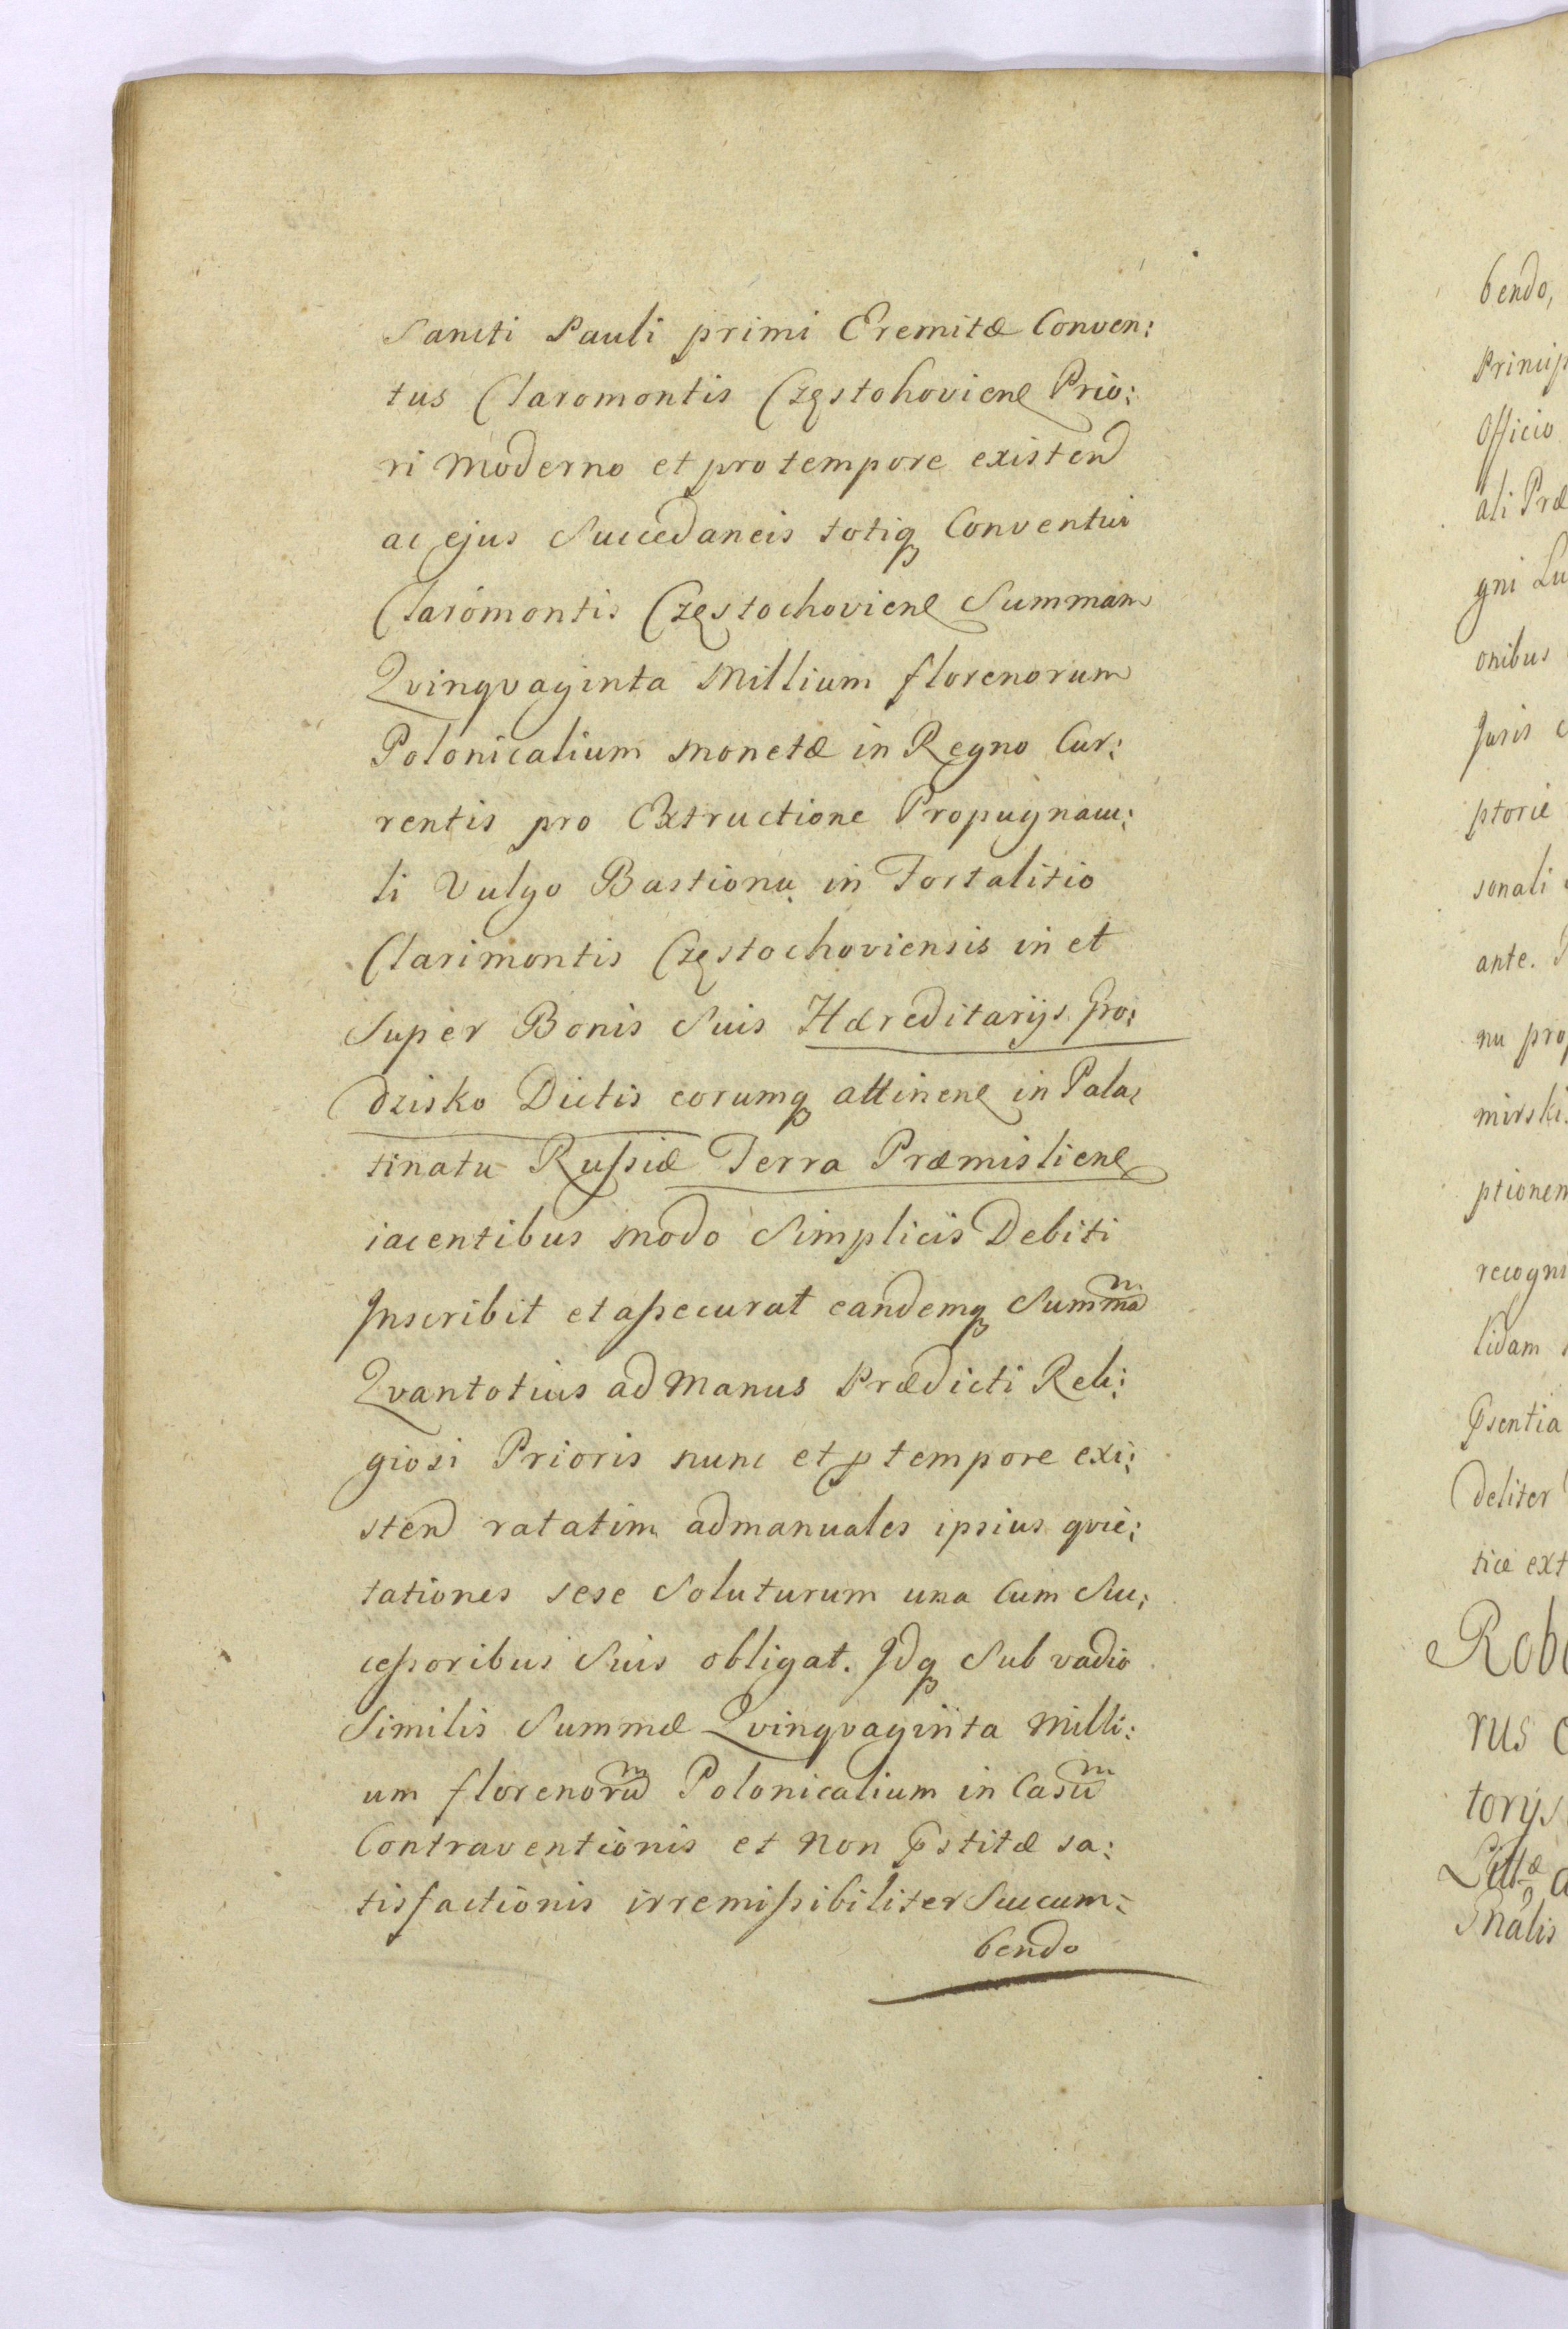 Sancti Pauli primi Eremitæ Conven:
tus Claromontis Częstohoviene Prio:
ri Moderno et pro tempore existend
ac ejus Succedaneis totiq Conventui
Claromontis Częstochoviene Summam
Qvinqvaginta Millium florenorum
Polonicalium Monetæ in Regno Cur:
rentis pro Extructione Propugnacu:
li Vulgo Bastionu in Fortalitio
Clarimontis Częstochoviensis in et
Super Bonis Suis Hæreditarijs Gro:
dzisko Dictis eorumq attinene in Pala:
tinatu Russiæ Terra Præmisliene
iacentibus modo Simplicis Debiti
Inscribit et assecurat eandemq Summam
Qvantotius ad Manus Prædicti Reli:
giosi Prioris nunc et p tempore exi:
stend ratatim admanuales ipsius qvie:
tationes sese Soluturum una Cum Suc:
cessoribus Suis obligat. Idq Sub vadio
Similis Summæ Qvinqvaginta Milli:
um florenorum Polonicalium in Casum
Contraventionis et Non Pstitæ sa:
tisfactionis irremissibiliter Succum:
bendo
bendo,
Princip
Officio
ali Præ
gni Lu
onibus
Juris c
ptorie
sonali
ante.
nu prop
mirski
ptionem
recogni
lidam
Psentia
deliter
tice ext
Robo
rus
torijs
Littæ a
Snalis